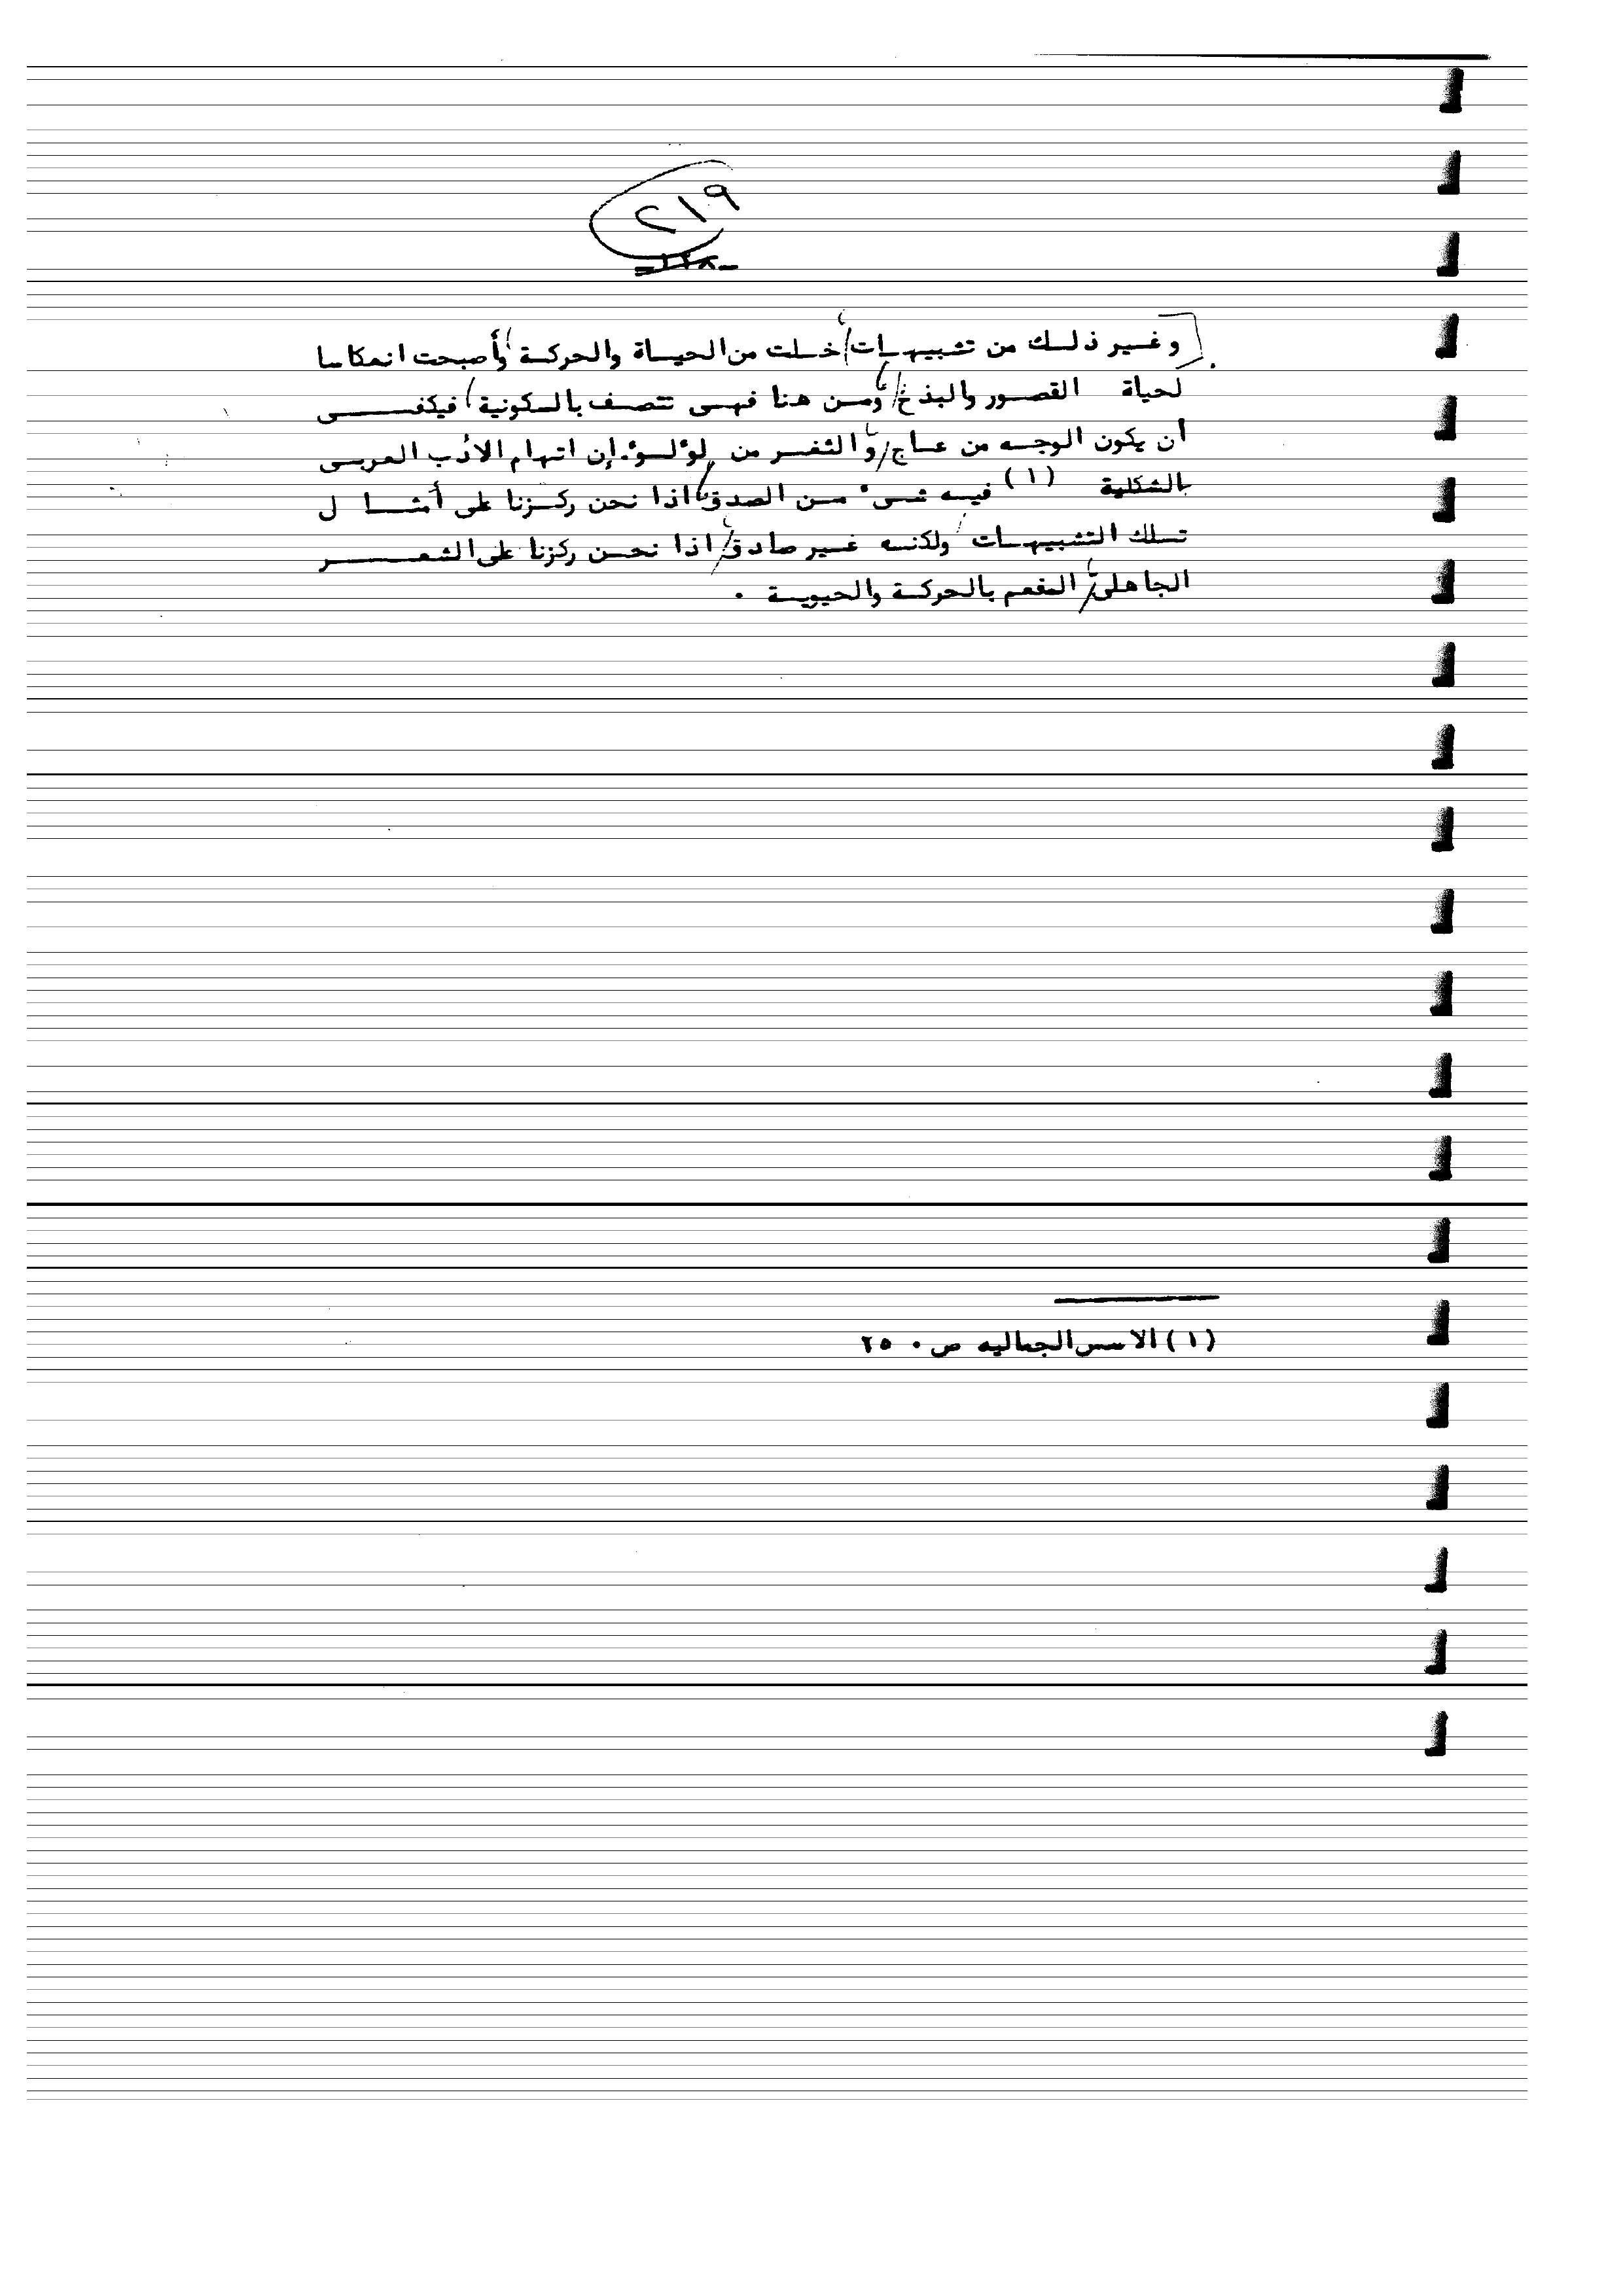 ٢١٩
وغير ذلك من تشبيهات، خلت من الحياة والحركة، وأصبحت انعكاسا
لحياة القصور والبذخ، ومن هنا فهى تتصف بالسكونية، فيكفى
أن يكون الوجه من عاج، والثغر من لؤلؤ. إن اتهام الأدب العربى
بالشكلية (١) فيه شىء من الصدق، اذا نحن ركزنا على أمثال
تلك التشبيهات، ولكنه غير صادق، اذا نحن ركزنا على الشعر
الجاهلى، المفعم بالحركة والحيوية .
(١) الاسس الجماليه ص ٠ ٢٥